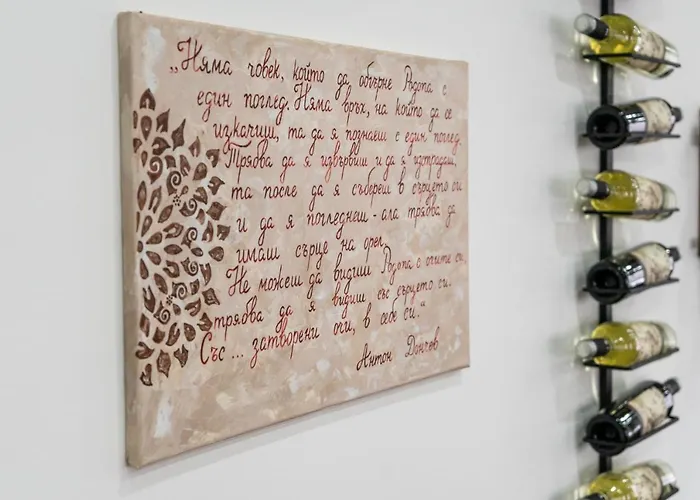 „Няма човек, който да обгърне Родопа с
един поглед. Няма връх, на който да се
изкачиш, та да я познаеш с един поглед.
Трябва да я извървиш и да я изстрадаш,
та после да я събереш в сърцето си
и да я погледнеш - ала трябва да
имаш сърце на орел.
Не можеш да видиш Родопа с очите си,
трябва да я видиш със сърцето си.
Със ... затворени очи, в себе си.“
Антон Дончев